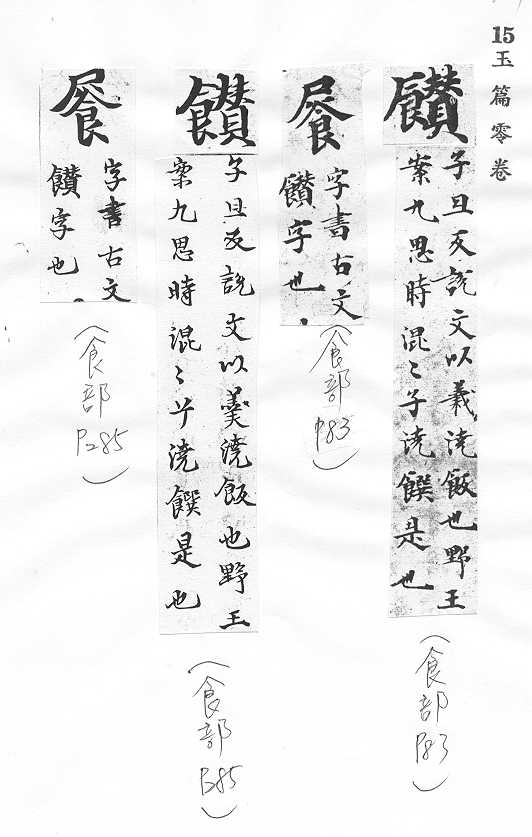 15 玉篇零卷
饡
子旦反説文以義澆飯也野王
案九思時混〻子澆饌是也
(食部P83)
字書古文
饡字也
(食部P83)
饡
子旦反説文以羹澆飯也野王
案九思時混〻兮澆饌是也
(食部P285)
字書古文
饡字也
(食部P285)